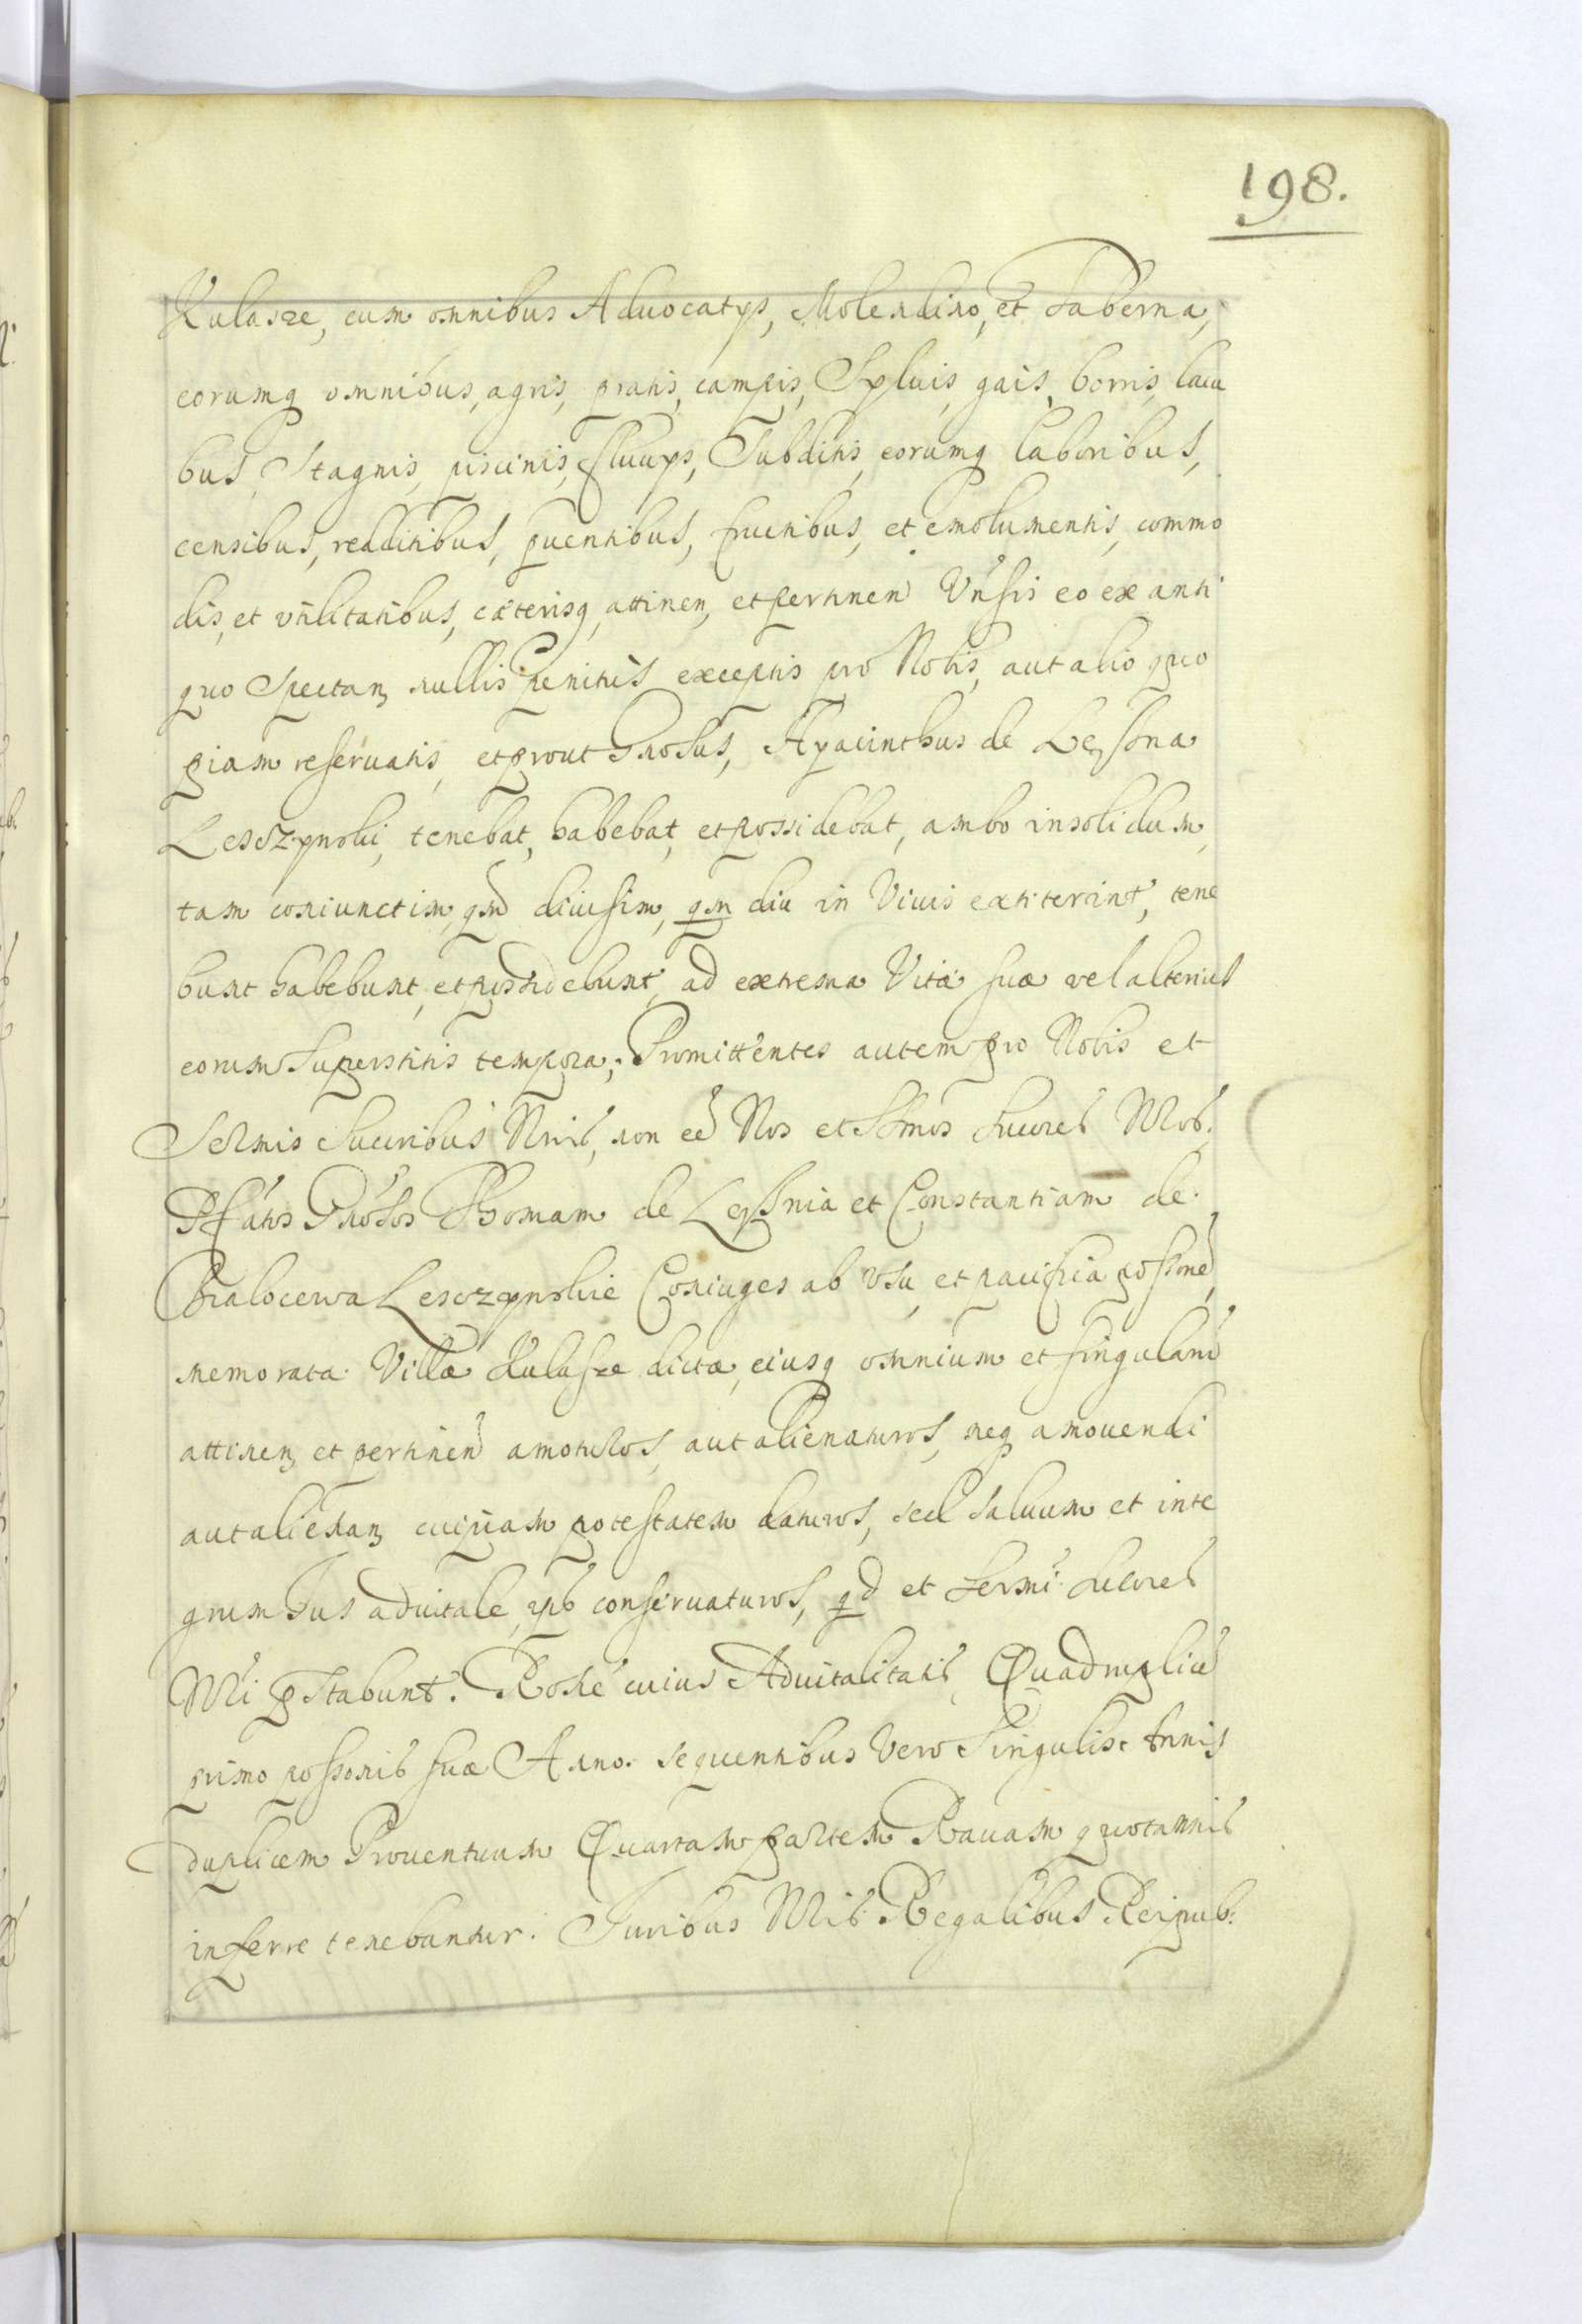 198.
Kulasze, cum omnibus Aduocatÿs, Molendino, et Taberna,
eorumq omnibus, agris, pratis, campis, Syluis, gais, borris, lacu
bus, Stagnis, piscinis, fluuÿs, Subditis, eorumq laboribus,
censibus, redditibus, puentibus, fructibus, et emolumentis, commo
dis, et vtilitatibus, cæterisq, attinen, et pertinen Vnſis eo ex anti
quo Spectan nullis penitus exceptis pro Nobis, aut alio quo
piam reseruatis, et prout Gnosus, Hyacinthus de Leszna
Lesczynski, tenebat, habebat, et possidebat, ambo insolidum,
tam coniunctim, qm diuisim, qm diu in Viuis extiterint, tene
bunt habebunt, et possidebunt, ad extrema Vitæ suæ vel alterius
eorum Superstitis tempora; Promittentes autem pro Nobis et
Sermis Succribus Nris, non eē Nos et Sermos Succres Nros.
Pfatos Gnosos Thomam de Leszna et Constantiam de
Lesczynskie Coniuges ab vsu, et pacifica possone
memoratæ Villæ Kulasze dictæ, eiusq omnium et singularū
attinen et pertinen amoturos, aut alienaturos, neq amouendi
aut alienan cuipiam potestatem daturos, sed saluum et inte
grum Ius aduitale, ipŝ conseruaturos, qd et Sermi Succres
Nri pstabunt. Rone cuius Aduitalitatis, Quadruplice
primo possonis suæ Anno. sequentibus Vero Singulis Annis
duplicem Prouentuum Quartam partem Rauam quotannis
inferre tenebuntur. Iuribus Nris Regalibus Reipub: